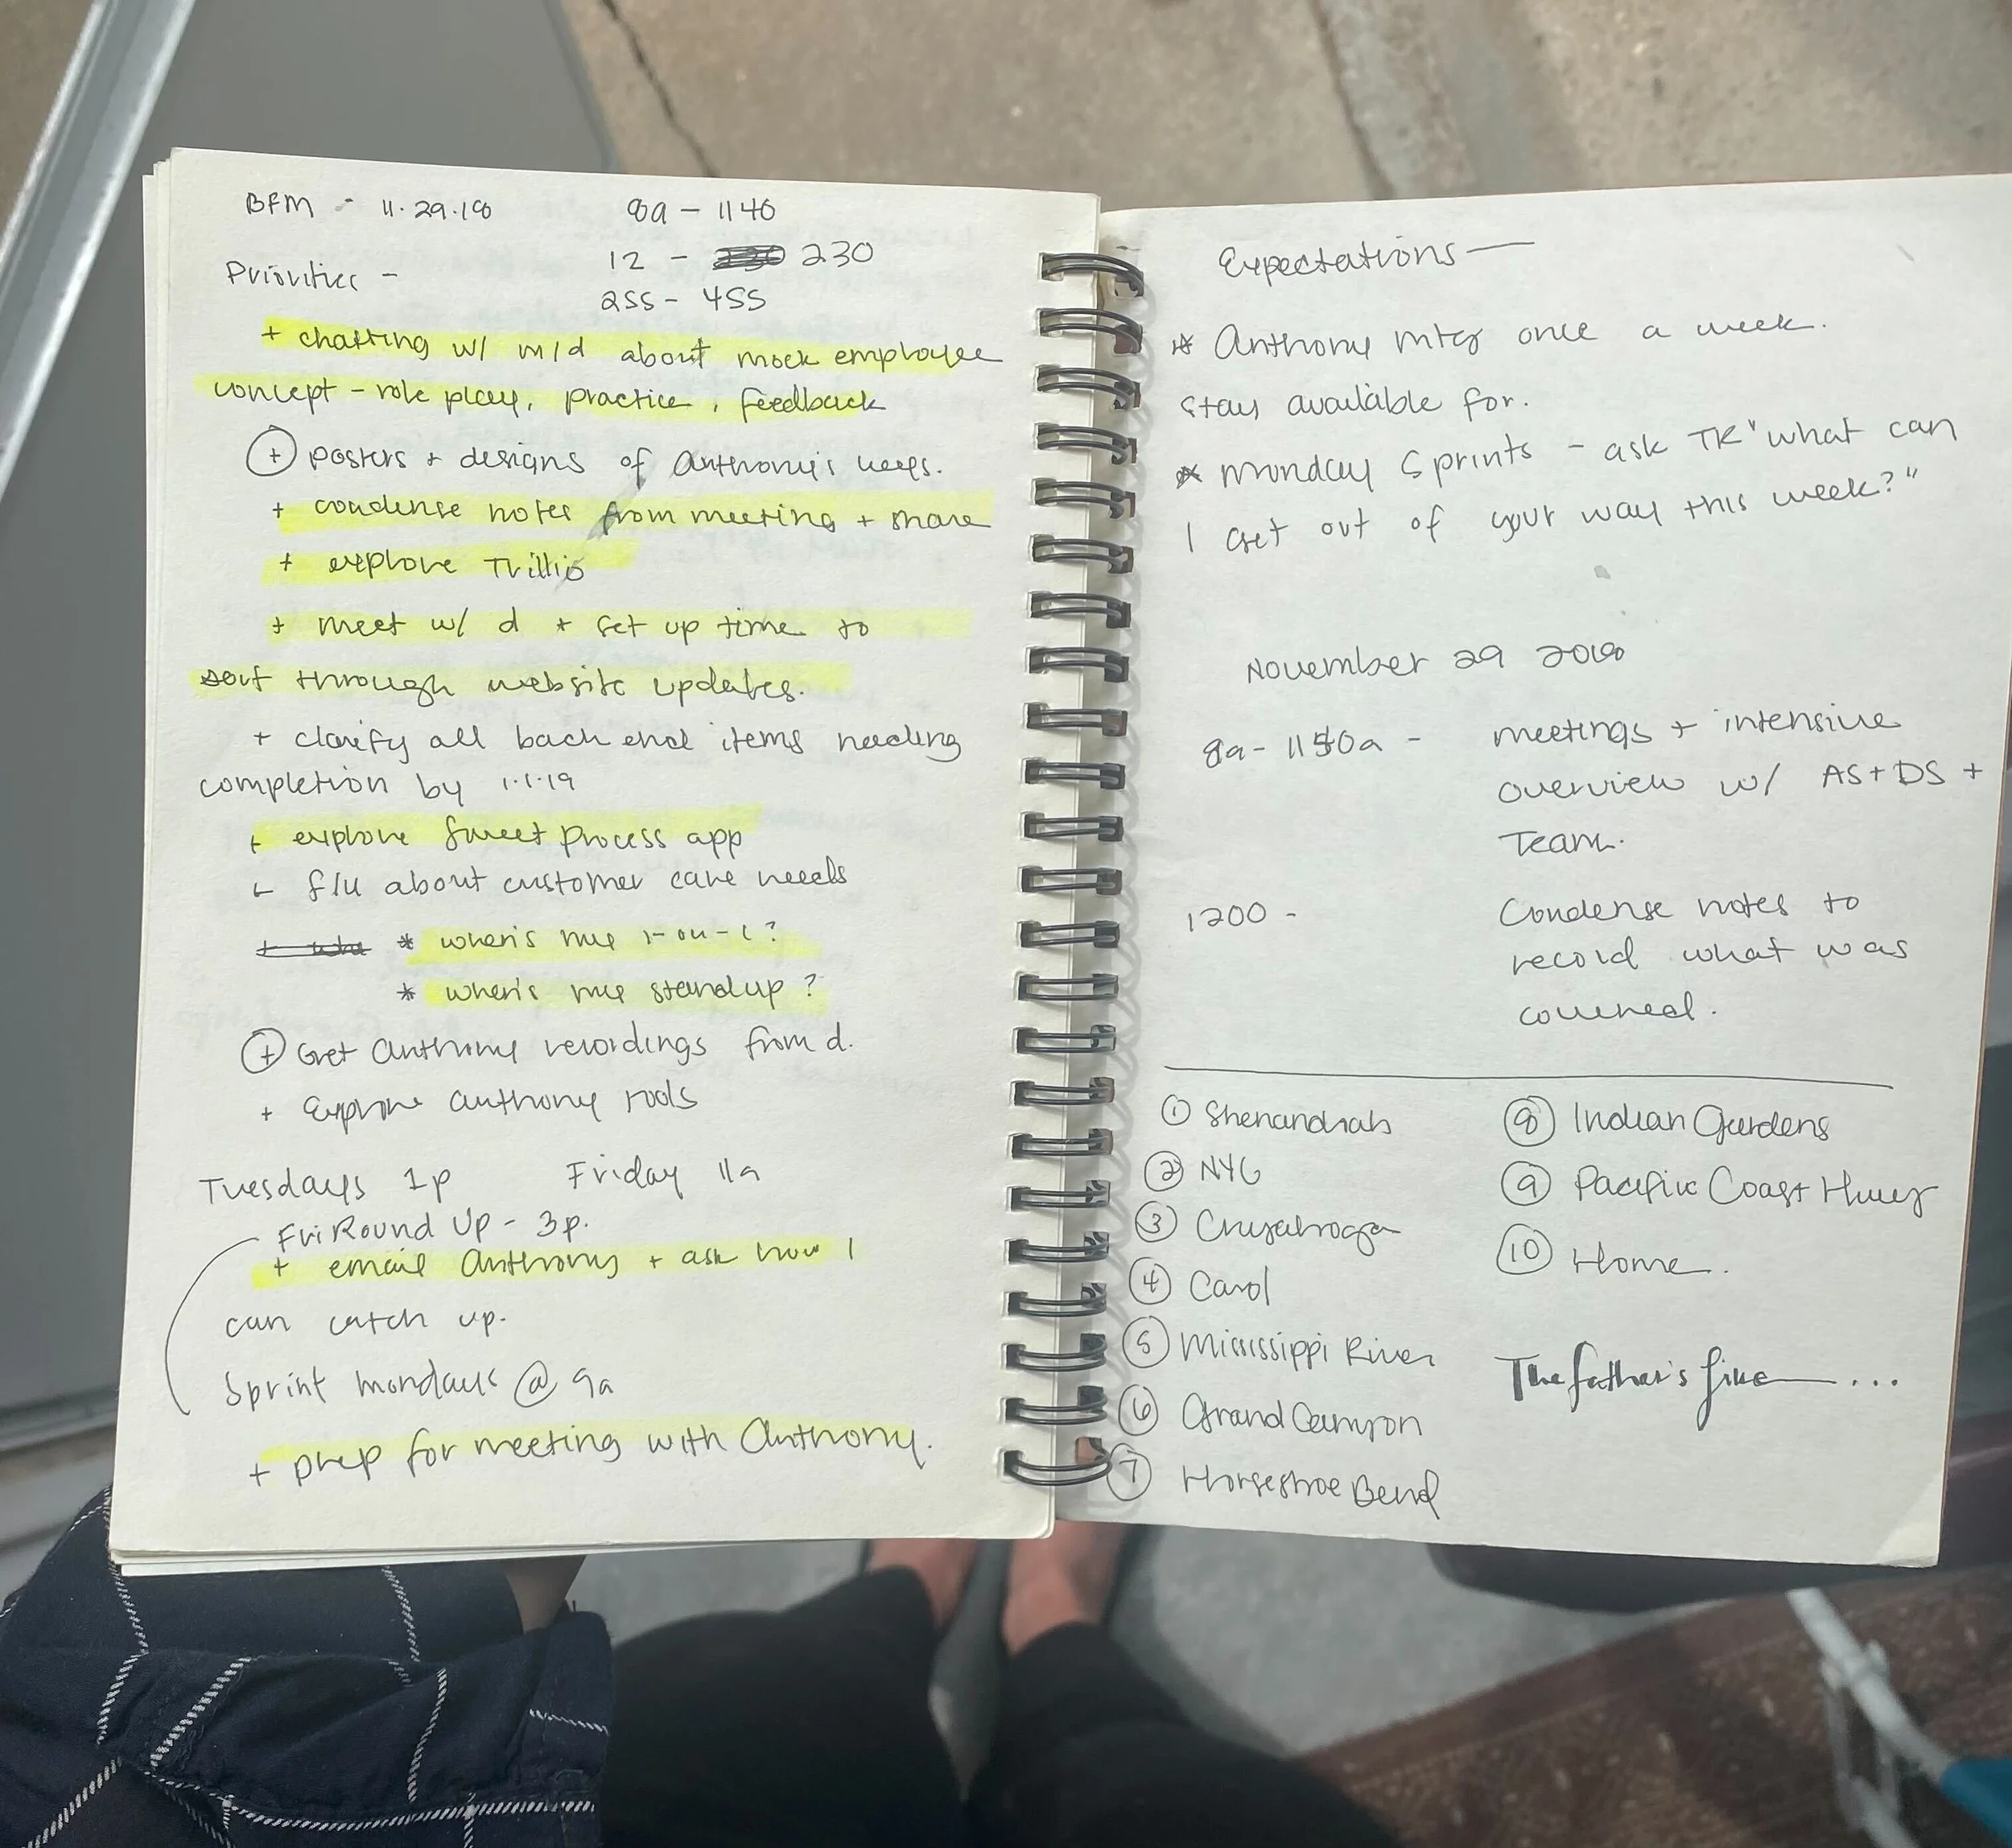 BFM - 11.29.18 8a - 1140
Priorities - 12 - 230
255 - 455
+ chatting w/ m/d about mock employee
concept - role play, practice, feedback
+ posters + designs of Anthony's keys.
+ condense notes from meeting + share
+ explore Trillio
+ meet w/ d + set up time to
sort through website updates.
+ clarify all back end items needing
completion by 1.1.19
+ explore Sweet Process app
+ f/u about customer care needs
* when's my 1-on-1?
* when's my standup?
+ Get Anthony recordings from d.
+ Explore Anthony
Tuesdays 1p Friday 11a
Fri Round Up - 3p.
+ email Anthony + ask how I
can catch up.
Sprint Mondays @ 9a
+ prep for meeting with Anthony.
Expectations —
* Anthony mtg once a week.
stay available for.
* Monday Sprints - ask TR "what can
I get out of your way this week?"
November 29 2018
8a - 1150a - meetings + intensive
overview w/ AS + DS +
Team.
1200 - Condense notes to
record what was
covered.
① Shenandoah
② NYC
③ Cuyahoga
④ Carol
⑤ Mississippi River
⑥ Grand Canyon
⑦ Horseshoe Bend
⑧ Indian Gardens
⑨ Pacific Coast Hwy
⑩ Home.
The father's fire ...